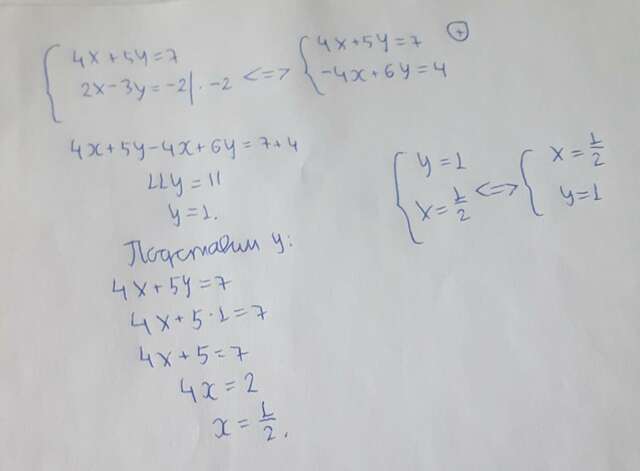 { 4x+5y=7
2x-3y=-2 | · -2 <=> { 4x+5y=7 (+)
-4x+6y=4
4x+5y-4x+6y=7+4
11y=11
y=1.
Подставим y:
4x+5y=7
4x+5·1=7
4x+5=7
4x=2
x=1/2.
{ y=1
x=1/2 <=> { x=1/2
y=1